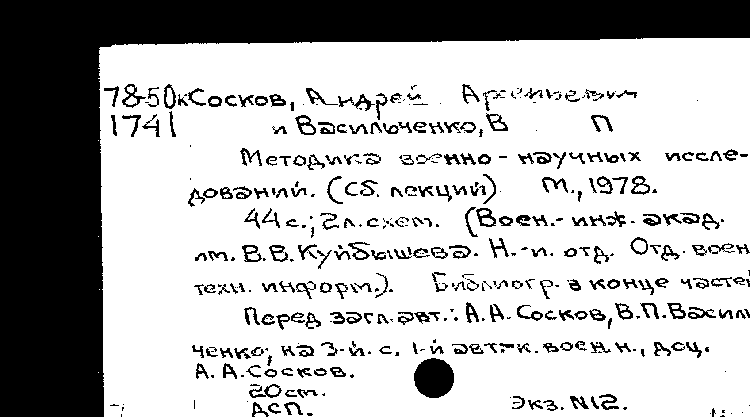 78-50к Сосков, Андрей Арсеньевич
1741 и Васильченко, В П
Методика военно-научных иссле-
дований. (Сб. лекций). М., 1978.
44 с.; 2 л. схем. (Воен.-инж. акад.
им. В.В. Куйбышева. Н.-и. отд. Отд. воен
техн. информ.). Библиогр. в конце частей
Перед загл. авт.: А.А. Сосков, В.П. Василь
ченко; на 3-й с. 1-й авт.-к. воен. н., доц.
А.А. Сосков.
20 см.
ДСП. Экз. N12.